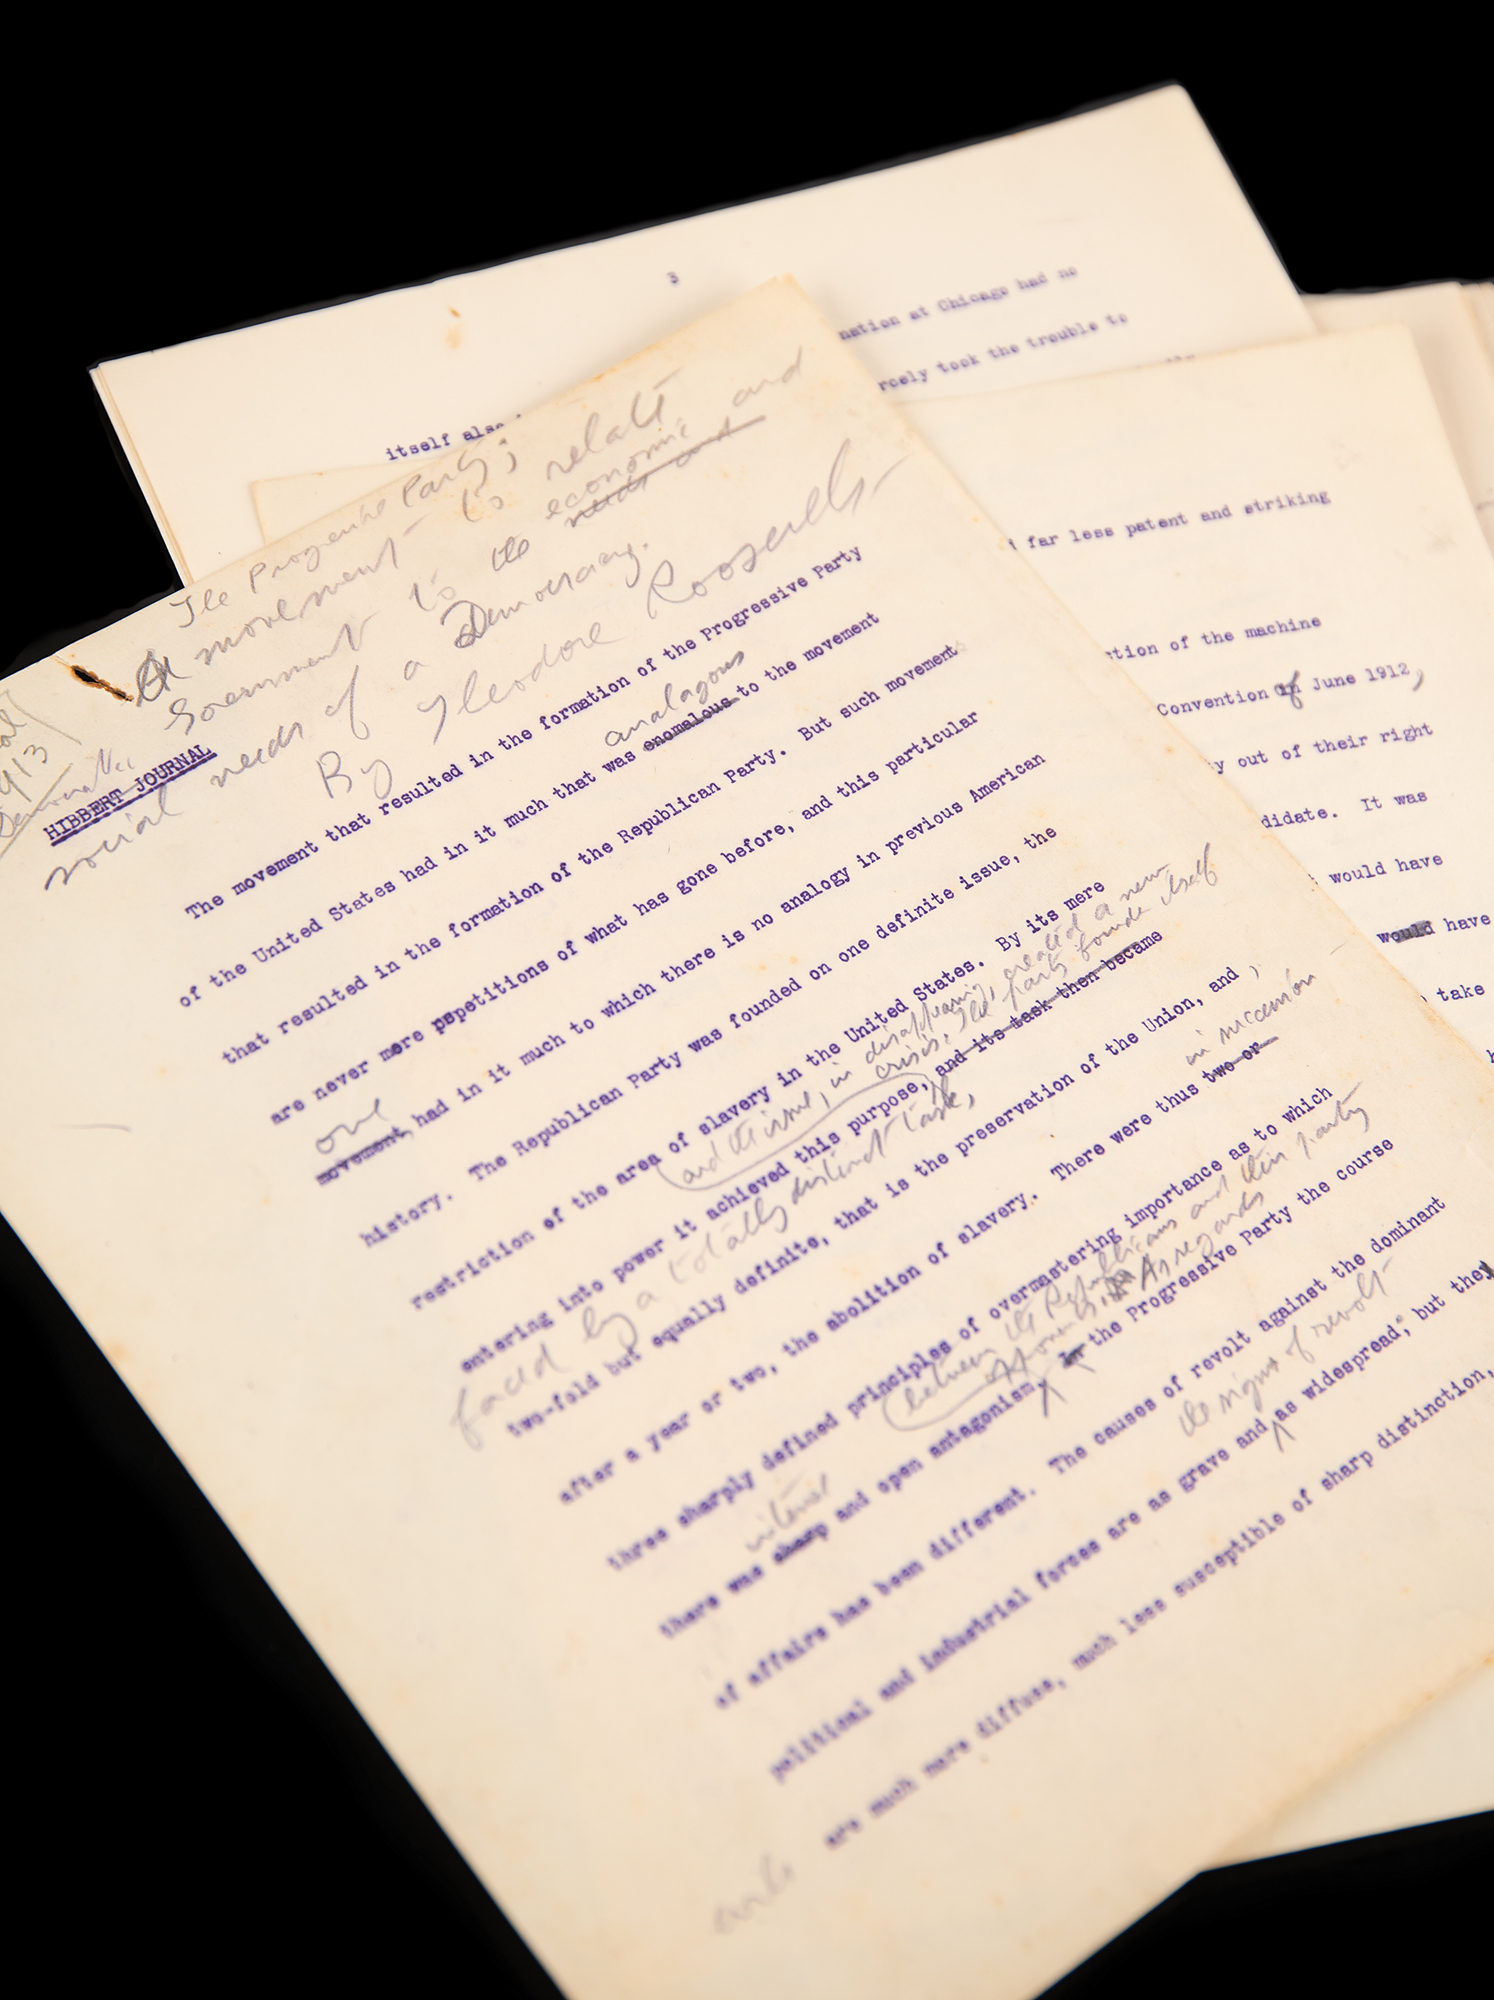 3
itself also
nation at Chicago had no
rcely took the trouble to
far less patent and striking
ction of the machine
Convention of June 1912,
y out of their right
didate. It was
would have
would have
take
The Progressive Party;
A movement to relate
Government to the economic and
needs and
social needs of a Democracy.
By Theodore Roosevelt
1913
HIBBERT JOURNAL
The movement that resulted in the formation of the Progressive Party
analagous
of the United States had in it much that was enomalous to the movement
that resulted in the formation of the Republican Party. But such movement
are never mere repetitions of what has gone before, and this particular
one
movement, had in it much to which there is no analogy in previous American
history. The Republican Party was founded on one definite issue, the
restriction of the area of slavery in the United States. By its mere
and the issue, in disappearing, created a new
crisis; the party found itself
entering into power it achieved this purpose, and its task then became
faced by a totally distinct task,
two-fold but equally definite, that is the preservation of the Union, and,
in succession
after a year or two, the abolition of slavery. There were thus two or
three sharply defined principles of overmastering importance as to which
between the Republicans and their party
opponents. As regards
intense
there was sharp and open antagonism, in the Progressive Party the course
of affairs has been different. The causes of revolt against the dominant
the signs of revolt
political and industrial forces are as grave and as widespread, but they
are much more diffuse, much less susceptible of sharp distinction,